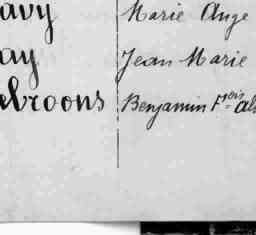 avy Marie Ange
ay Jean Marie
ebroons Benjamin F.ois